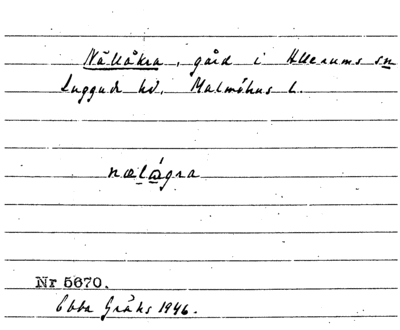 Nällåkra, gård i Allerums sn
Luggude hd, Malmöhus l.
nælågra
Nr 5670.
Ebba Gråhs 1946.